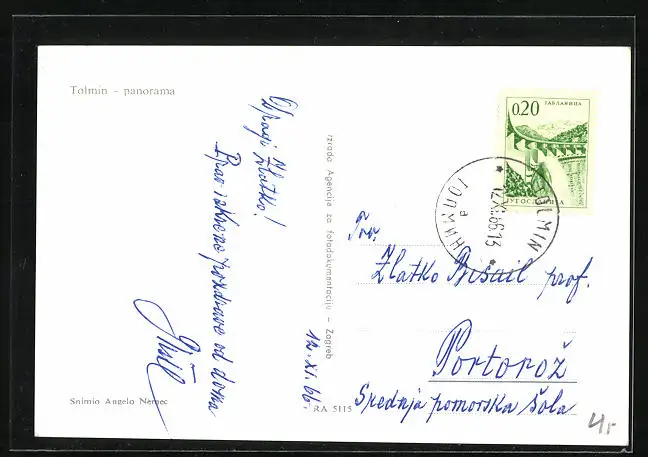 Tolmin - panorama
Dragi Zlatko!
Prav iskrene pozdrave od doma
12.XI.66.
Snimio Angelo Nemec
Izrada Agencija za fotodokumentaciju - Zagreb
RA 5115
0,20
ЈАБЛАНИЦА
ЈУГОСЛАВИЈА
TOLMIN
12.XI.66.13
ТОЛМИН
a
Tov.
Zlatko Bisail prof.
Portorož
Srednja pomorska šola